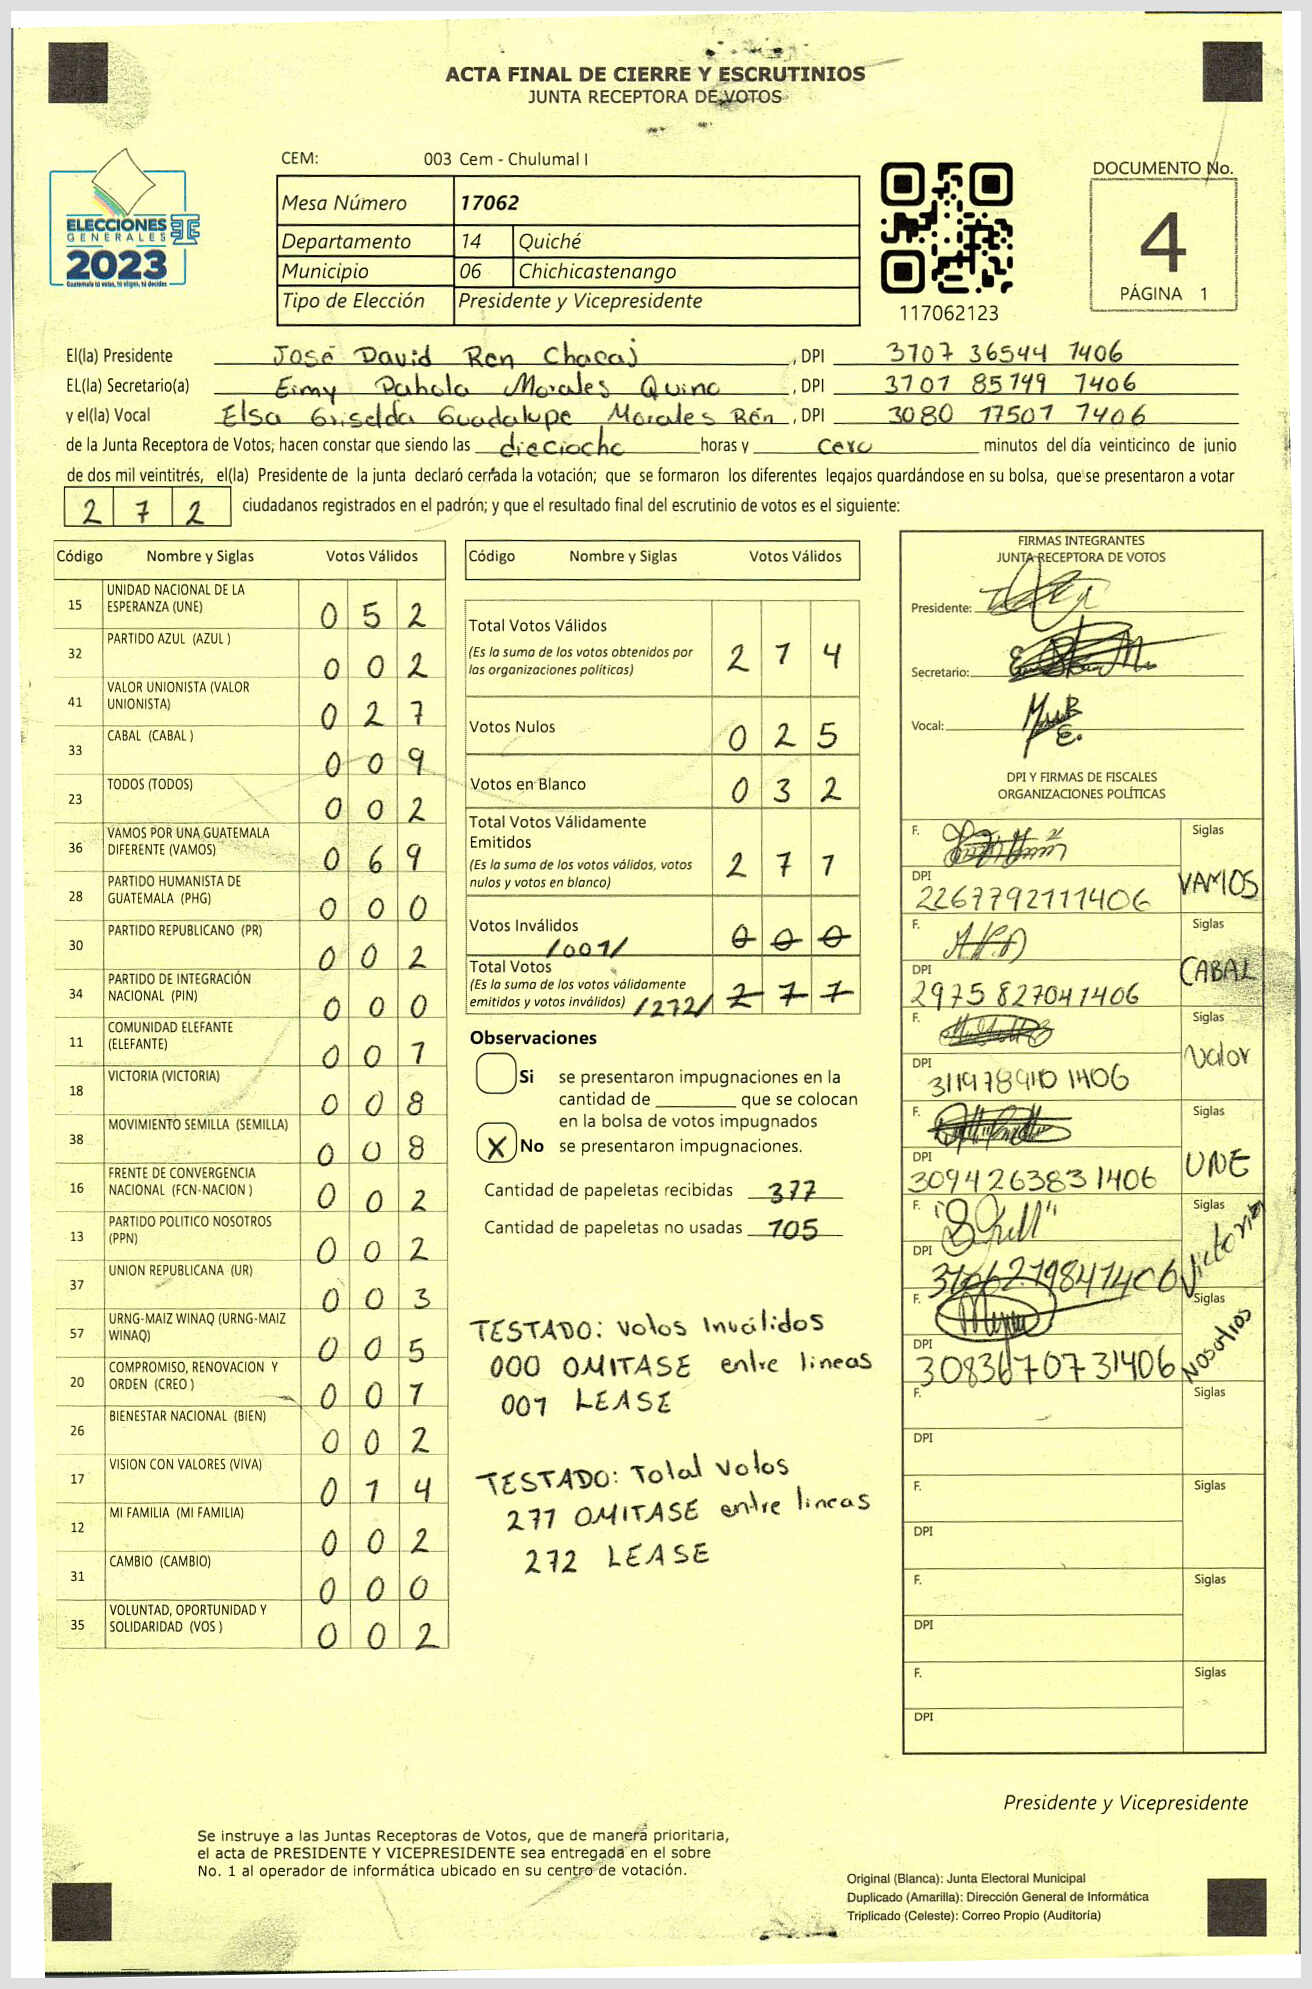 ACTA FINAL DE CIERRE Y ESCRUTINIOS
JUNTA RECEPTORA DE VOTOS
CEM: 003 Cem - Chulumal I
DOCUMENTO No.
4
PÁGINA 1
ELECCIONES
GENERALES
2023
Guatemala tú votas, tú eliges, tú decides
Mesa Número 17062
Departamento 14 Quiché
Municipio 06 Chichicastenango
Tipo de Elección Presidente y Vicepresidente
117062123
El(la) Presidente José David Ren Chacaj, DPI 3707 36544 1406
EL(la) Secretario(a) Eimy Pahola Morales Quino, DPI 3701 85749 1406
y el(la) Vocal Elsa Griselda Guadalupe Morales Rén, DPI 3080 17507 1406
de la Junta Receptora de Votos, hacen constar que siendo las dieciocho horas y cero minutos del día veinticinco de junio
de dos mil veintitrés, el(la) Presidente de la junta declaró cerrada la votación; que se formaron los diferentes legajos guardándose en su bolsa, que se presentaron a votar
272 ciudadanos registrados en el padrón; y que el resultado final del escrutinio de votos es el siguiente:
Código Nombre y Siglas Votos Válidos
15 UNIDAD NACIONAL DE LA
ESPERANZA (UNE) 0 5 2
32 PARTIDO AZUL (AZUL ) 0 0 2
41 VALOR UNIONISTA (VALOR
UNIONISTA) 0 2 7
33 CABAL (CABAL ) 0 0 9
23 TODOS (TODOS) 0 0 2
36 VAMOS POR UNA GUATEMALA
DIFERENTE (VAMOS) 0 6 9
28 PARTIDO HUMANISTA DE
GUATEMALA (PHG) 0 0 0
30 PARTIDO REPUBLICANO (PR) 0 0 2
34 PARTIDO DE INTEGRACIÓN
NACIONAL (PIN) 0 0 0
11 COMUNIDAD ELEFANTE
(ELEFANTE) 0 0 1
18 VICTORIA (VICTORIA) 0 0 8
38 MOVIMIENTO SEMILLA (SEMILLA) 0 0 8
16 FRENTE DE CONVERGENCIA
NACIONAL (FCN-NACION ) 0 0 2
13 PARTIDO POLITICO NOSOTROS
(PPN) 0 0 2
37 UNION REPUBLICANA (UR) 0 0 3
57 URNG-MAIZ WINAQ (URNG-MAIZ
WINAQ) 0 0 5
20 COMPROMISO, RENOVACION Y
ORDEN (CREO ) 0 0 1
26 BIENESTAR NACIONAL (BIEN) 0 0 2
17 VISION CON VALORES (VIVA) 0 1 4
12 MI FAMILIA (MI FAMILIA) 0 0 2
31 CAMBIO (CAMBIO) 0 0 0
35 VOLUNTAD, OPORTUNIDAD Y
SOLIDARIDAD (VOS ) 0 0 2
Código Nombre y Siglas Votos Válidos
Total Votos Válidos
(Es la suma de los votos obtenidos por
las organizaciones políticas) 2 1 4
Votos Nulos 0 2 5
Votos en Blanco 0 3 2
Total Votos Válidamente
Emitidos
(Es la suma de los votos válidos, votos
nulos y votos en blanco) 2 7 1
Votos Inválidos 0 0 0
/001/
Total Votos
(Es la suma de los votos válidamente
emitidos y votos inválidos) /272/ 2 7 1
Observaciones
Si se presentaron impugnaciones en la
cantidad de ________ que se colocan
en la bolsa de votos impugnados
X No se presentaron impugnaciones.
Cantidad de papeletas recibidas 377
Cantidad de papeletas no usadas 105
TESTADO: Votos Inválidos
000 OMITASE entre lineas
001 LEASE
TESTADO: Total Votos
271 OMITASE entre lineas
272 LEASE
FIRMAS INTEGRANTES
JUNTA RECEPTORA DE VOTOS
Presidente:
Secretario:
Vocal:
DPI Y FIRMAS DE FISCALES
ORGANIZACIONES POLÍTICAS
F. Siglas
DPI 2267792111406 VAMOS
F. Siglas
DPI 2975 827041406 CABAL
F. Siglas
DPI 3119789101406 Valor
F. Siglas
DPI 3094263831406 UNE
F. Siglas
DPI Victoria
F. Siglas
DPI 3083670731406 Nosotros
F. Siglas
DPI
F. Siglas
DPI
F. Siglas
DPI
F. Siglas
DPI
Presidente y Vicepresidente
Se instruye a las Juntas Receptoras de Votos, que de manera prioritaria,
el acta de PRESIDENTE Y VICEPRESIDENTE sea entregada en el sobre
No. 1 al operador de informática ubicado en su centro de votación.
Original (Blanca): Junta Electoral Municipal
Duplicado (Amarilla): Dirección General de Informática
Triplicado (Celeste): Correo Propio (Auditoría)